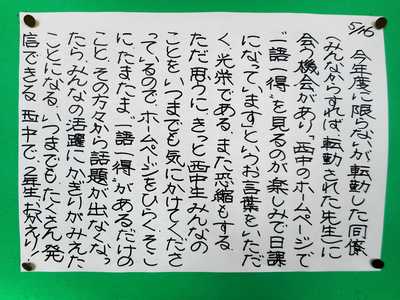 5/16
今年度に限らないが転勤した同僚
(みんなからすれば、転勤された先生)に
会う機会があり、「西中のホームページで
“一語一得”を見るのが楽しみで日課
になっています」というお言葉をいただ
く。光栄である。また恐縮もする。
ただ思うに、きっと西中生みんなの
ことを、いつまでも気にかけてくださ
っているので、ホームページをひらく。そこ
に、たまたま“一語一得”があるだけの
こと。その方々から話題が出なくなっ
たら、みんなの活躍にかぎりがみえた
ことになる。いつまでもたくさん発
信できる西中で。2年生おかえり!